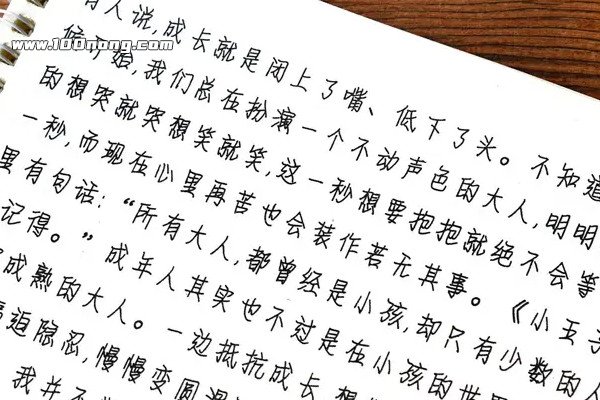 www.100nong.com
有人说,成长就是闭上了嘴、低下了头。不知道
候开始,我们总在扮演一个不动声色的大人,明明
的想突就突想笑就笑,这一秒想要抱抱就绝不会等
一秒,而现在心里再苦也会装作若无其事。《小王子
里有句话:“所有大人,都曾经是小孩,却只有少数的人
记得。”成年人其实也不过是在小孩的世界
成熟的大人。一边抵抗成长
迫隐忍,慢慢变圆滑
我并不